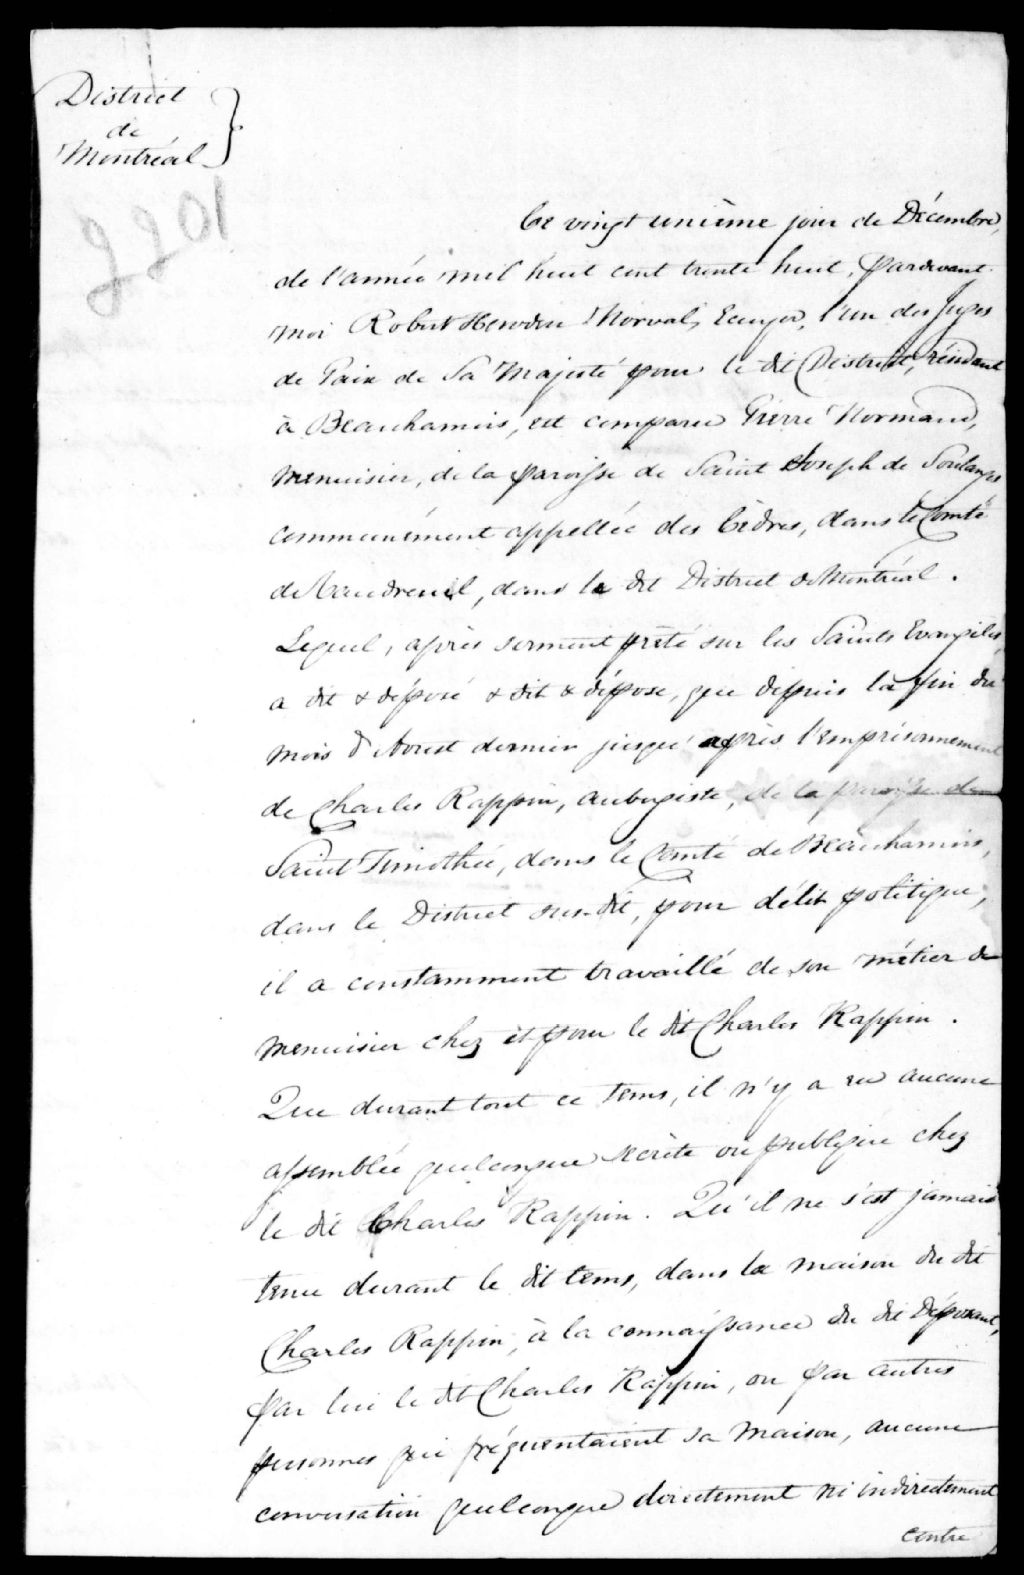 District
de
Montréal
2201
Ce vingt unième jour de Décembre,
de l'année mil huit cent trente huit, pardevant
moi Robert Howden Norval, Ecuyer, l'un des Juges
de Paix de Sa Majesté pour le dit District, résidant
à Beauharnois, est comparu Pierre Normand,
menuisier, de la paroisse de Saint Joseph de Soulanges
communément appellée des Cèdres, dans le Comté
de Vaudreuil, dans le dit District de Montréal.
Lequel, après serment prêté sur les Saints Evangiles,
a dit & déposé & dit & dépose, que depuis la fin du
mois d'Aoust dernier jusqu'après l'emprisonnement
de Charles Rappin, aubergiste, de la paroisse de
Saint Timothée, dans le Comté de Beauharnois,
dans le District sus-dit, pour délit politique,
il a constamment travaillé de son métier de
menuisier chez et pour le dit Charles Rappin.
Que durant tout ce tems, il n'y a eu aucune
assemblée quelconque secrète ou publique chez
le dit Charles Rappin. Qu'il ne s'est jamais
tenu durant le dit tems, dans la maison du dit
Charles Rappin, à la connaissance du dit Déposant,
par lui le dit Charles Rappin, ou par autres
personnes qui fréquentaient sa maison, aucune
conversation quelconque directement ni indirectement
contre